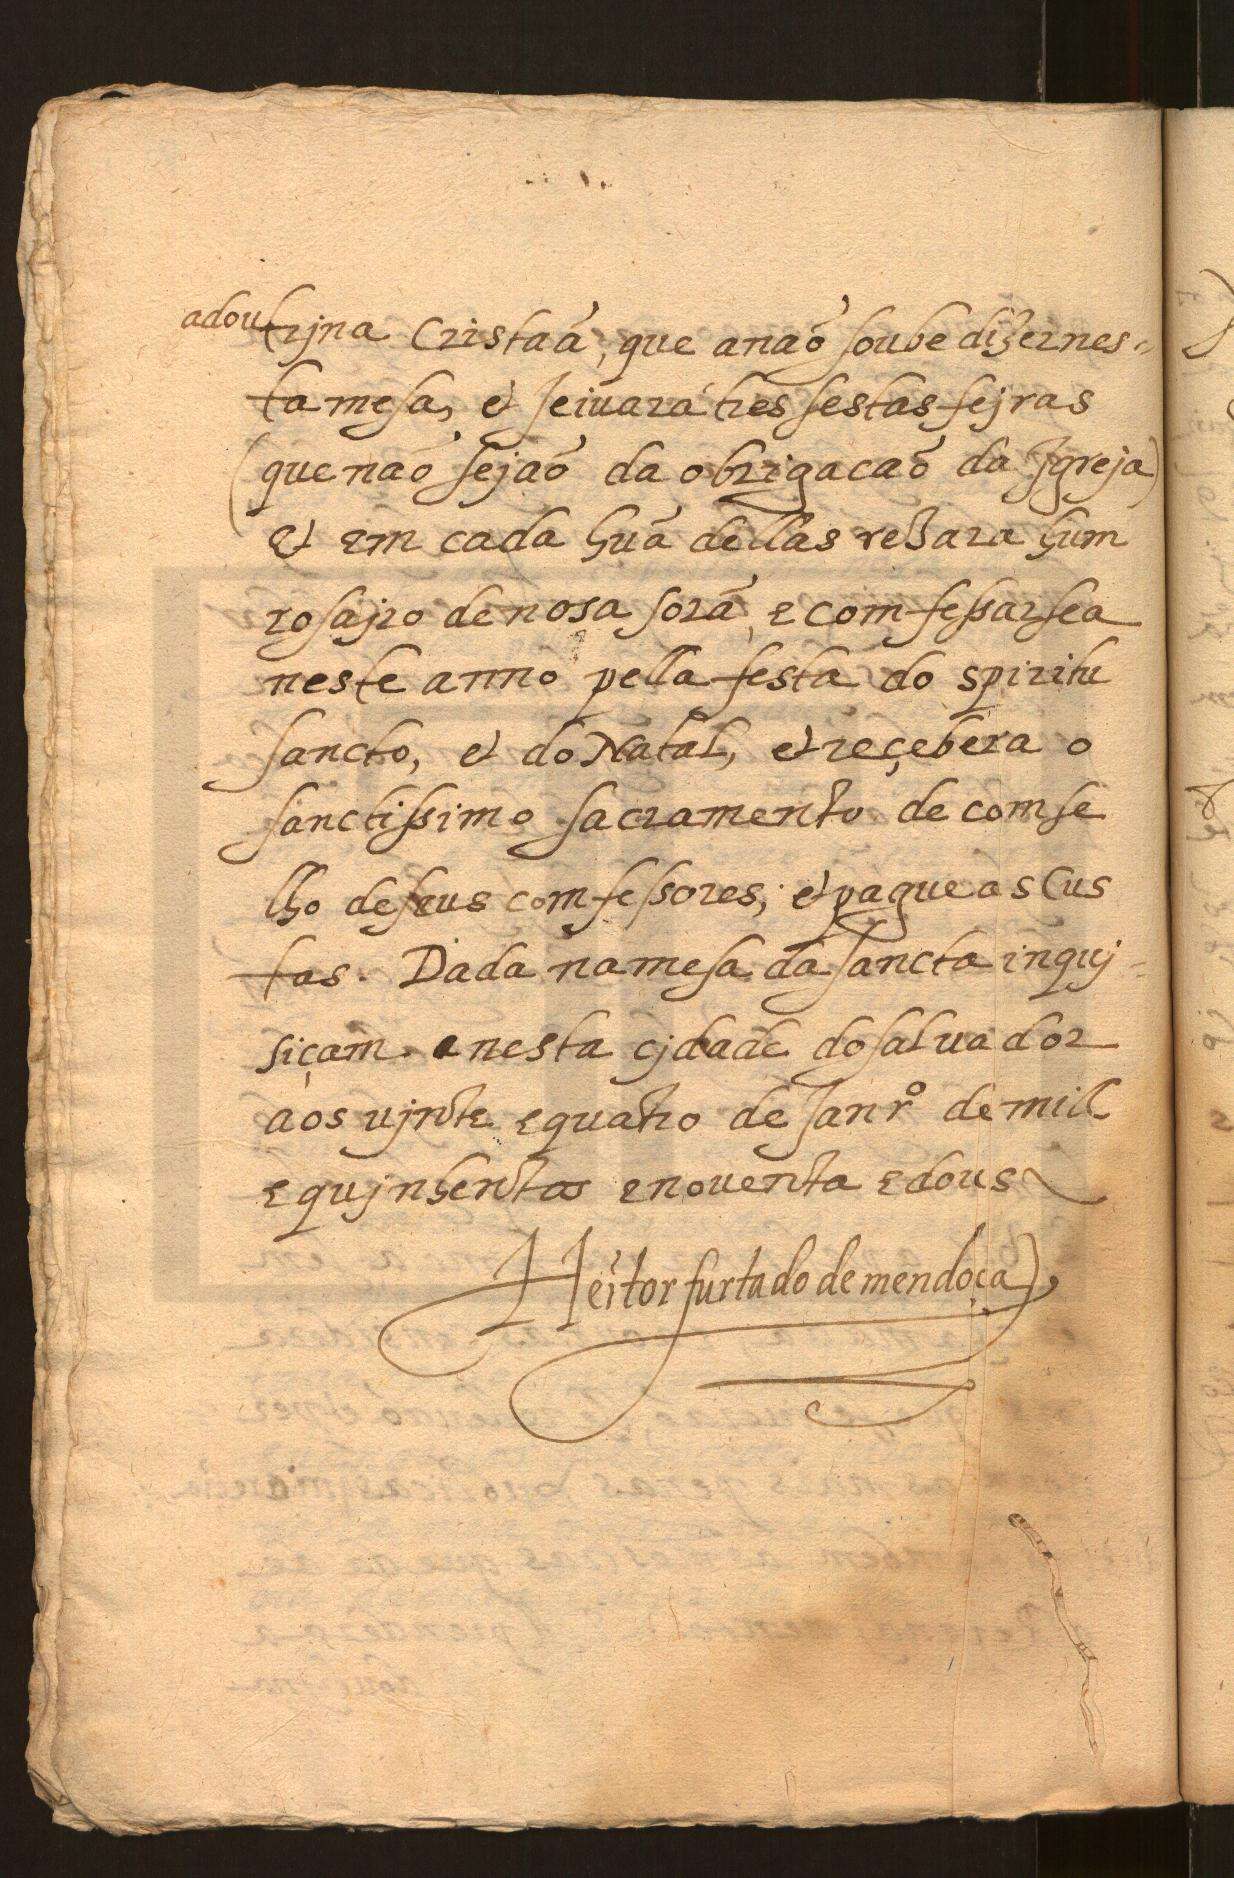 adoutrjna Cristaã, que anaõ soube dizer nes-
ta mesa, et jeiũara tres sestas fejras
(que naõ sejaõ da obrigacaõ da Jgreja)
et em cada huã dellas rezara hum
rosajro de nosa sorã, e comfessarsea
neste anno pella festa do spiritu
sancto, et do Natal, et reçebera o
sanctissimo sacramento de comse
lho de seus comfessores; et pague as Cus
tas. Dada na mesa da sancta inquj-
siçam. nesta cjdade do saluador
aos vjnte e quatro de Janrº de mill
e qujnhentos e nouenta e dous
Heitor furtado de mendoça